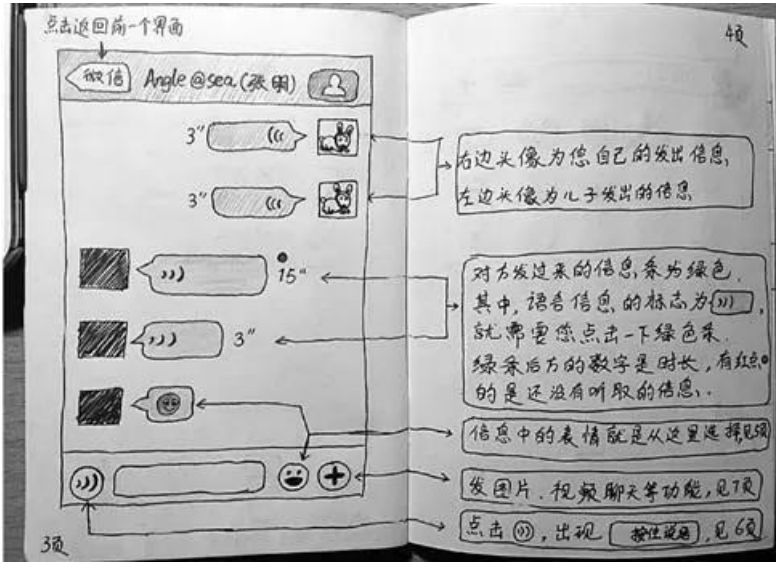 点击返回前一个界面
微信 Angle@sea(张明)
3"
3"
15"
3"
3页
4页
右边头像为您自己的发出信息,
左边头像为儿子发出的信息
对方发过来的信息条为绿色.
其中,语音信息的标志为 ,
就需要您点击一下绿色条.
绿条后方的数字是时长,有红点
的是还没有听取的信息.
信息中的表情就是从这里选择见5页
发图片、视频聊天等功能,见7页
点击 ,出现 按住说话 ,见6页